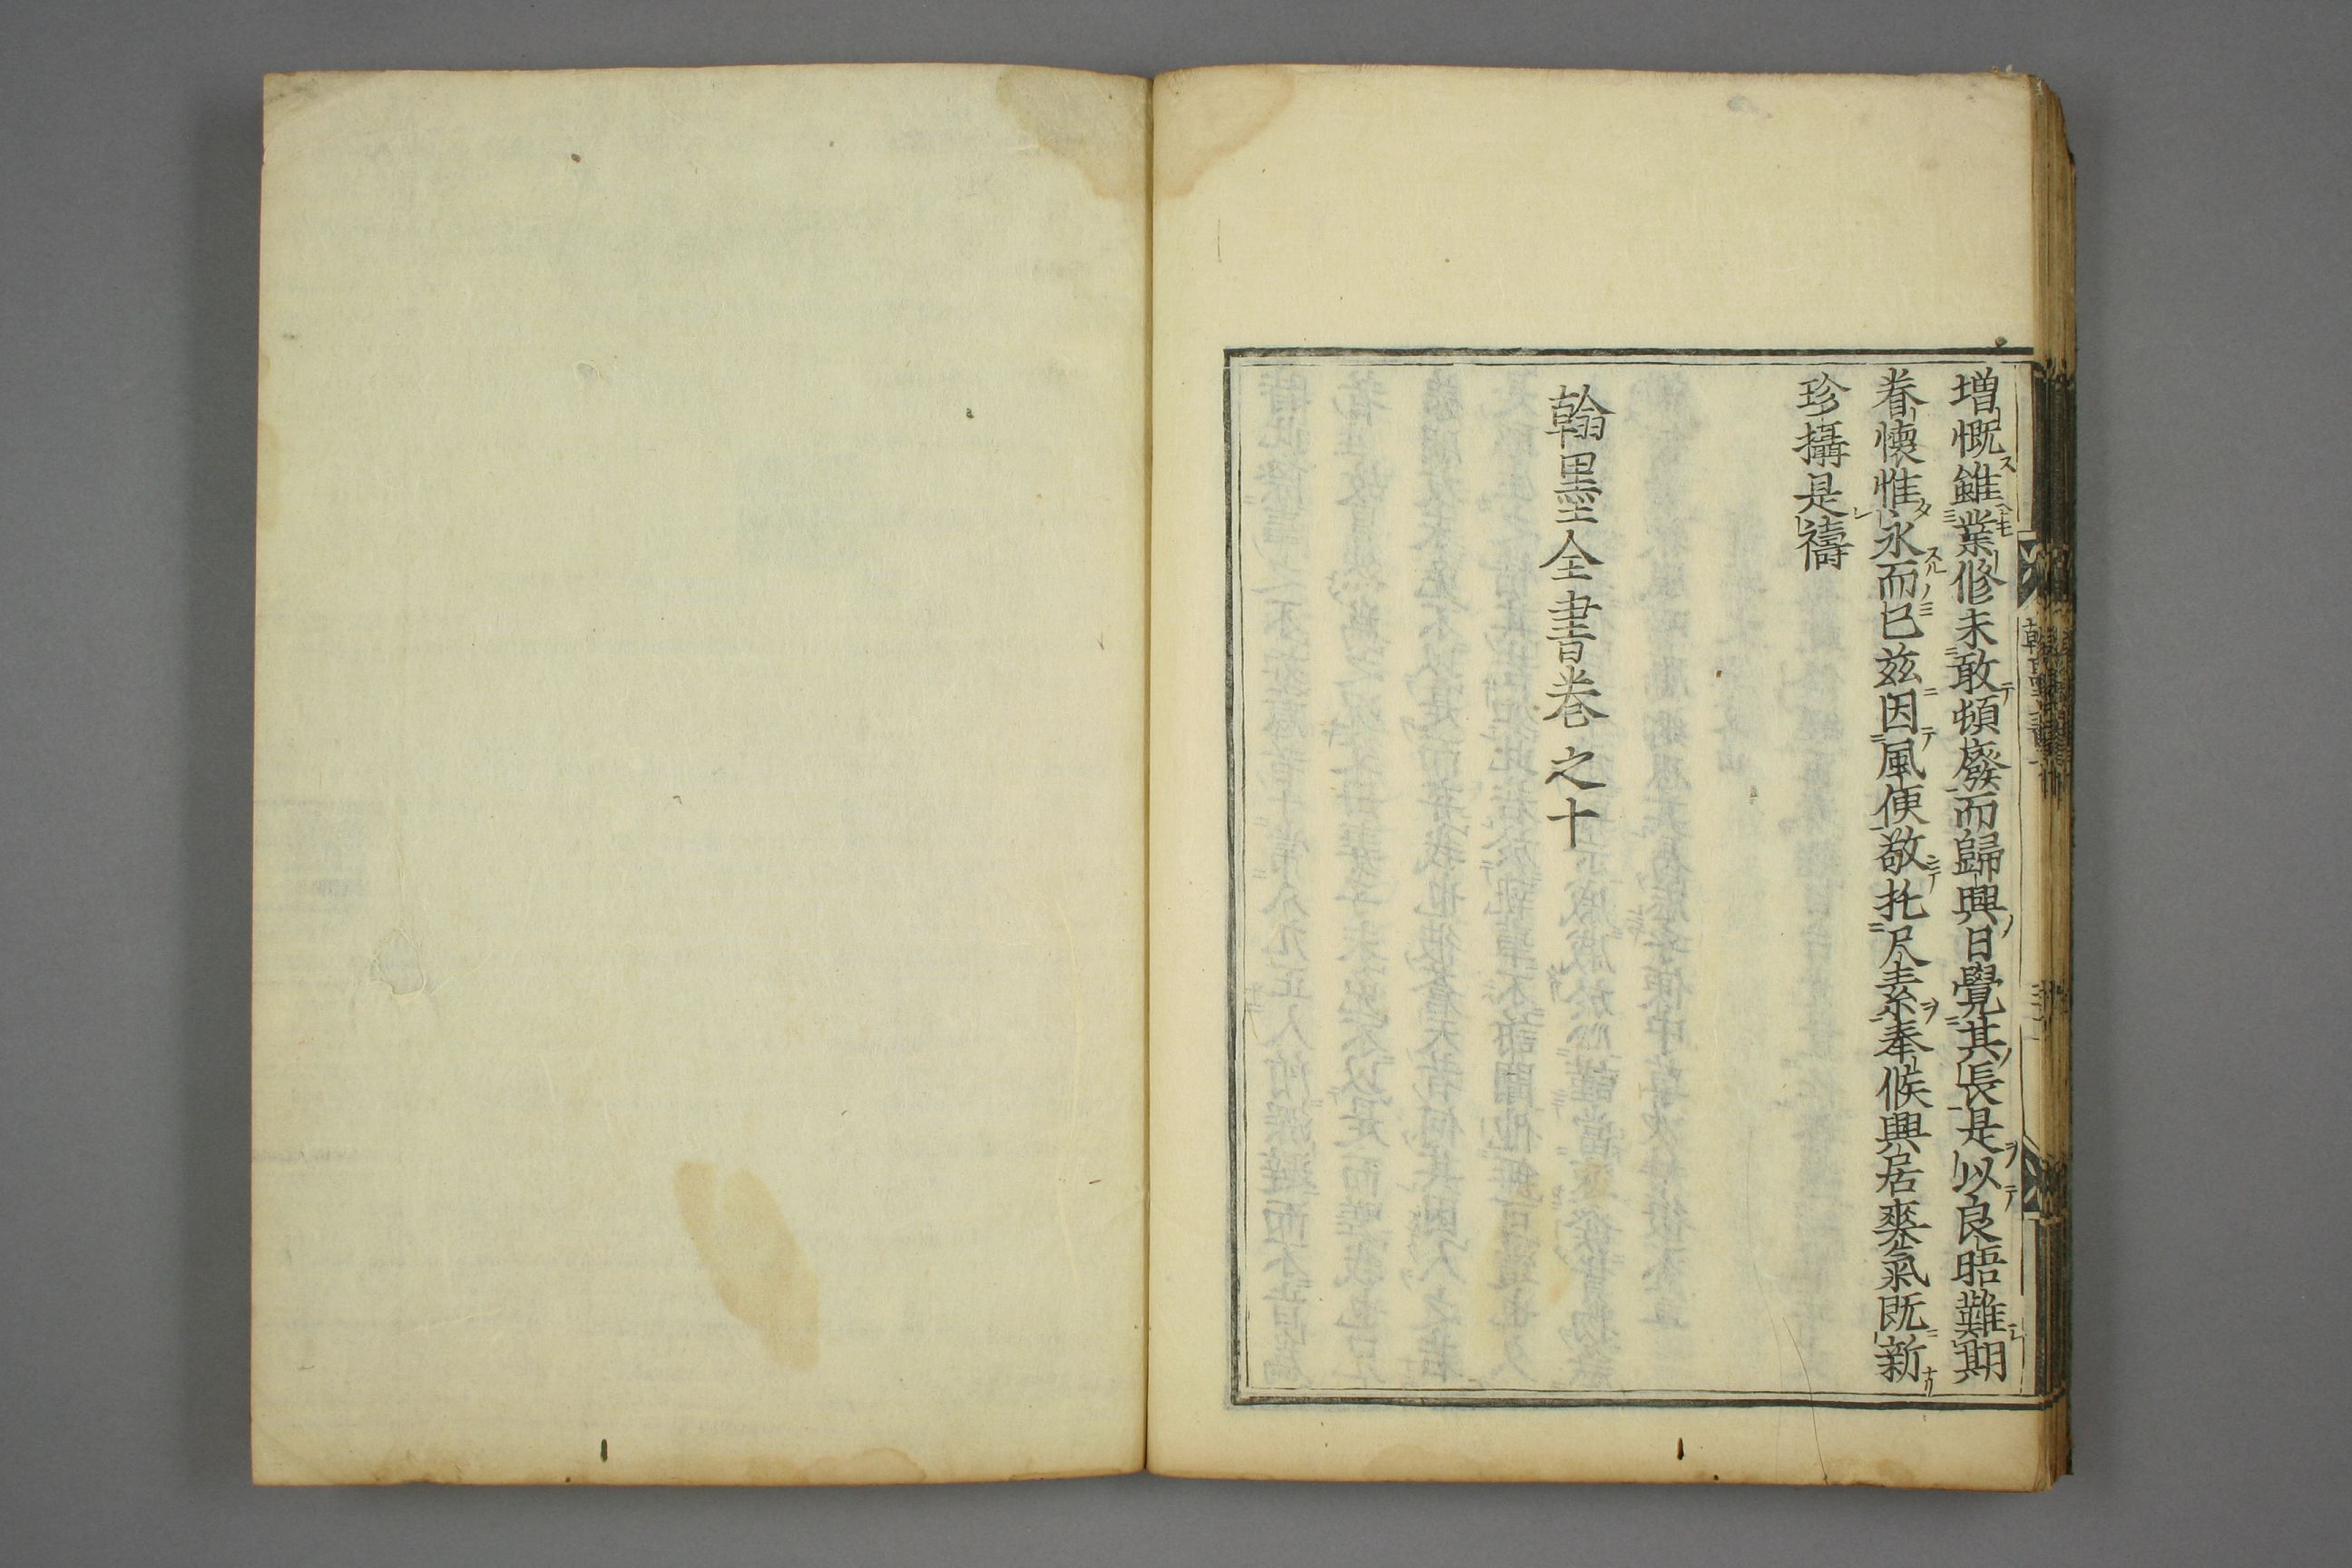 増慨雖業修未敢頓廢而歸興日覺其長是以良晤難期
眷懷惟永而已茲因風便敬托尺素奉候興居爽氣既新
珍攝是禱
翰墨全書巻之十